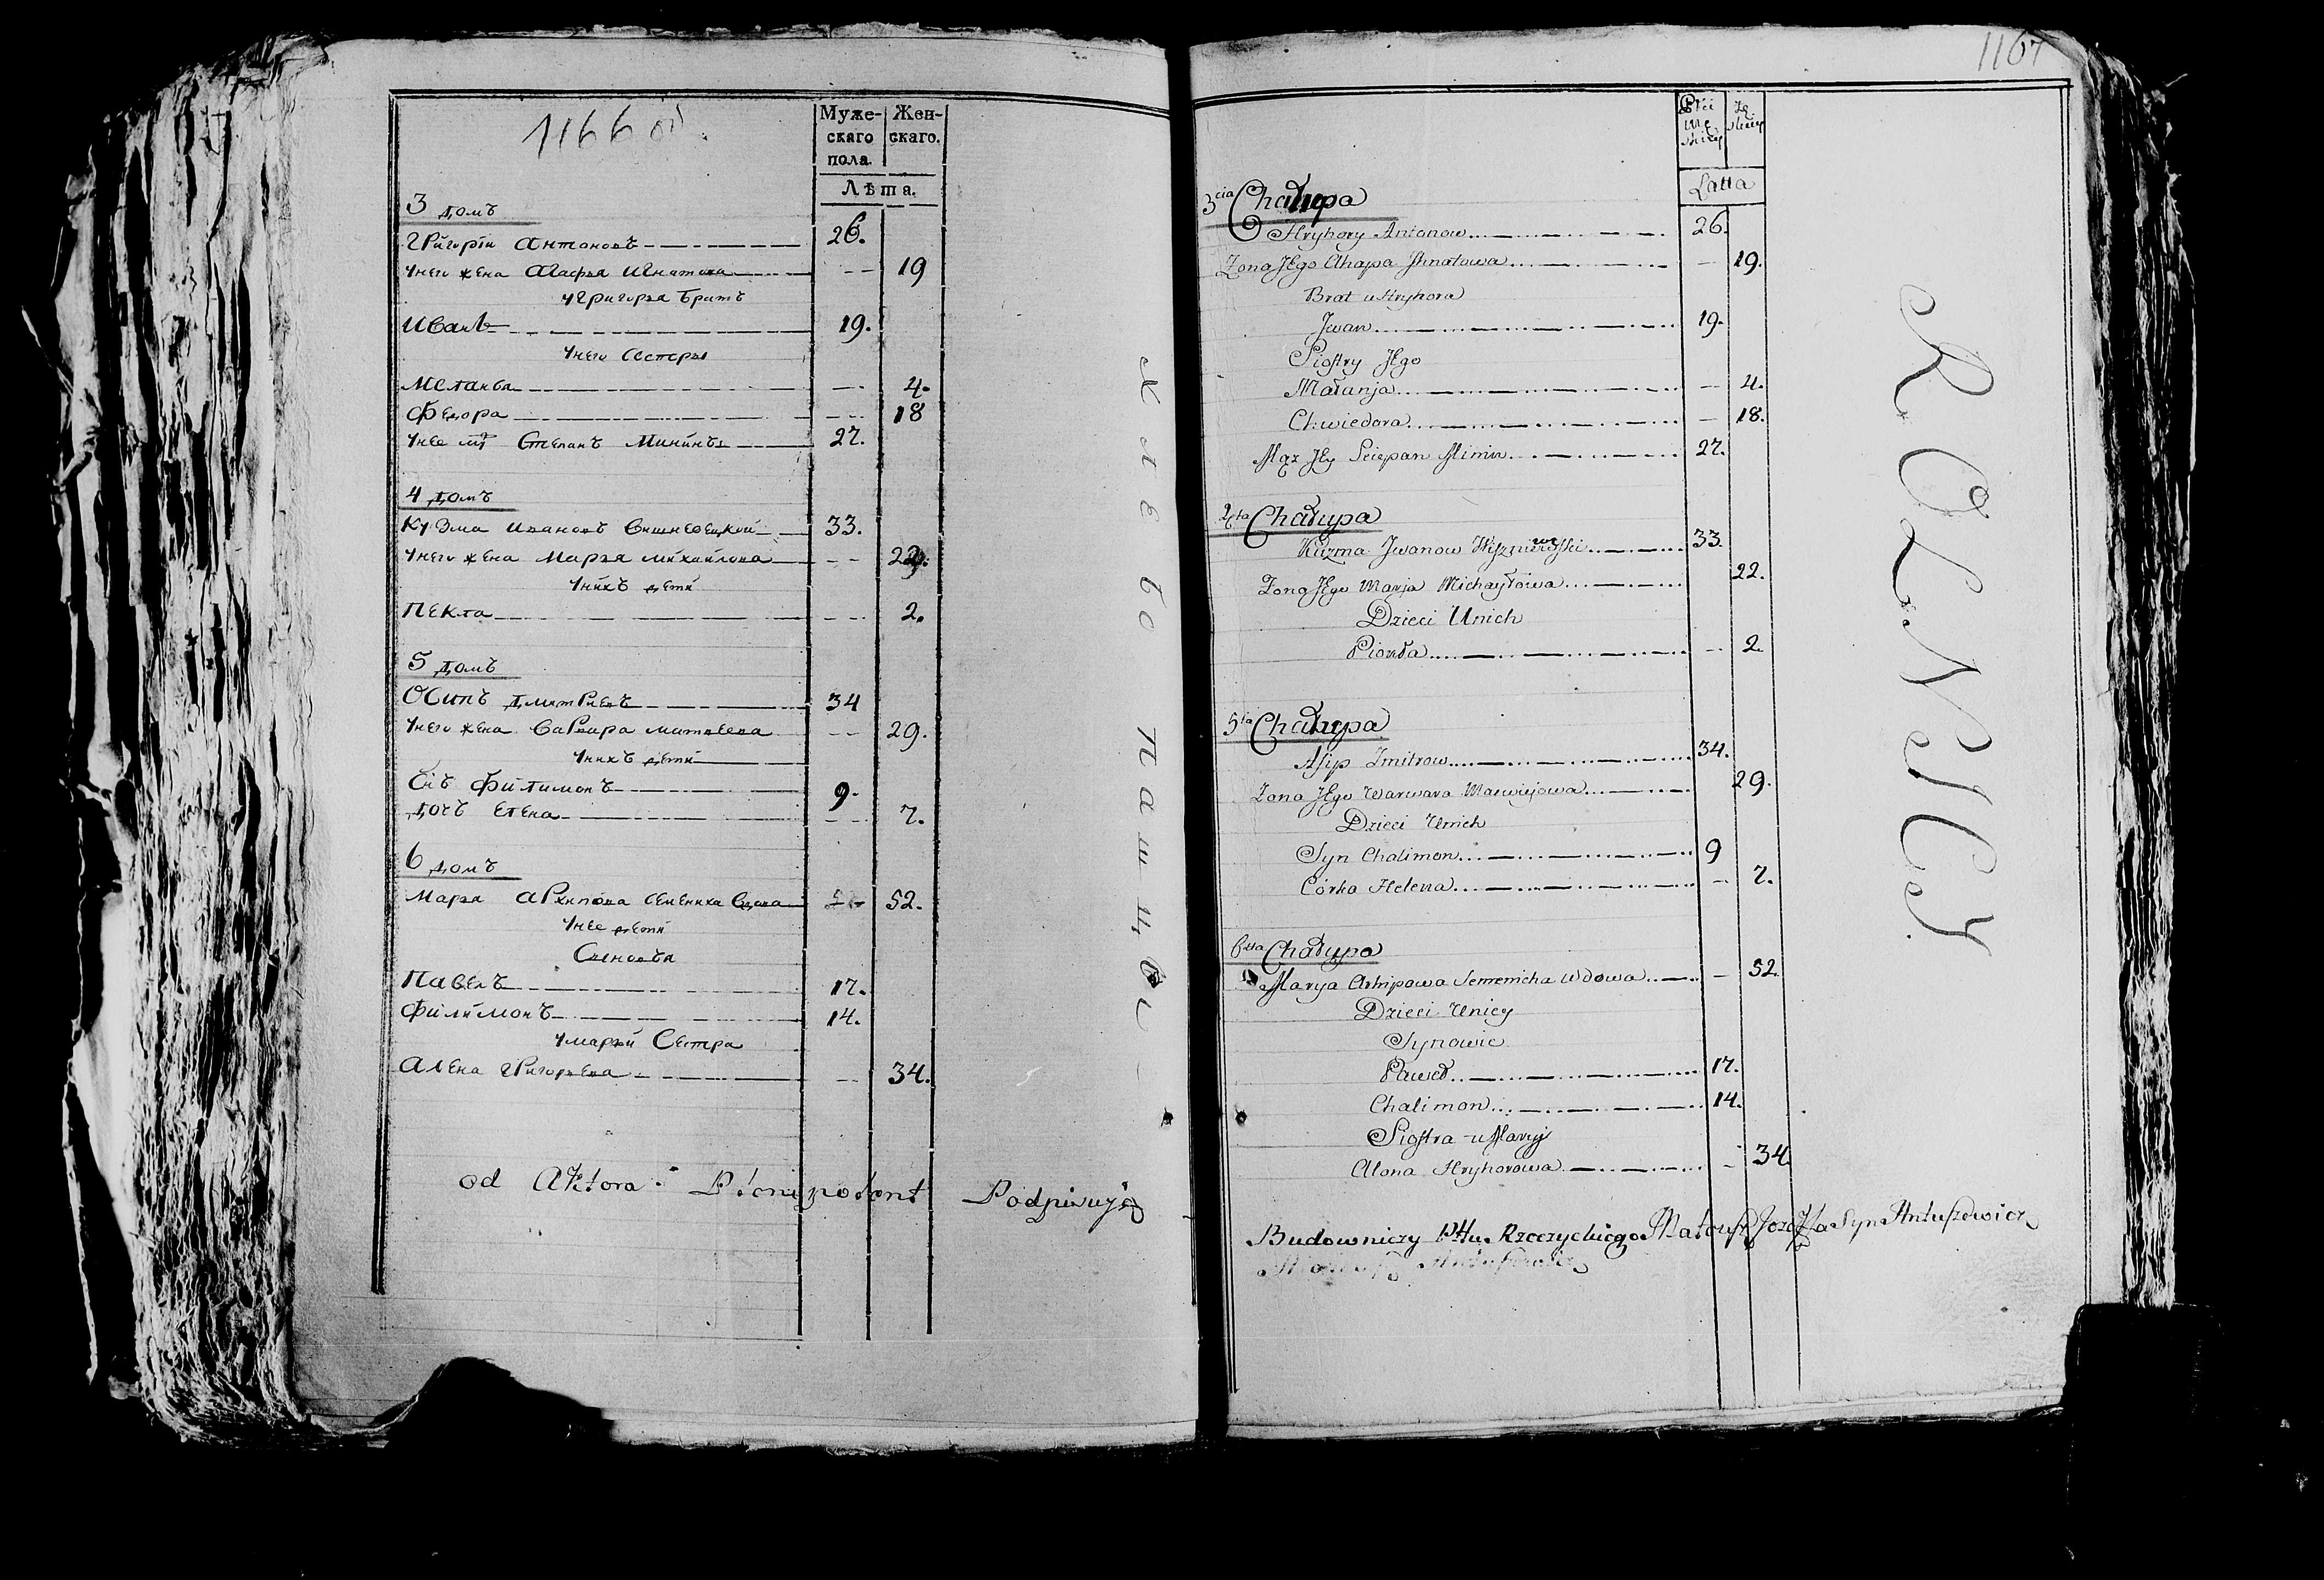 1166 об.
Муже-
скаго
пола.
Жен-
скаго.
Лѣта.
3 домъ
Григорій Антоновъ 26.
Унего жена Агафья Игнатова 19
Угригорья братъ
Иванъ 19.
Унего сестры
Меланья 4.
Федора 18
Унее Степанъ Мининъ 27.
4 домъ
Кузма Ивановъ Вишневецкой 33.
Унего жена Марья Михайлова
Унихъ дети
Пекла 2.
5 домъ
Осипъ Дмитриевъ 34
Унего жена Варвара Матвеева 29.
Унихъ дети
Сиъ Филимонъ 9.
Дочь Елена 7.
6 домъ
Марья Архипова Семениха Вдова 52.
Унее дети
Павелъ 17.
Филимонъ 14.
Умарьи Сестра
Алена Григорьева 34.
Хлебопашцы
od Aktora Plenipotent Podpisuję
1167
Płci
mę
skiey
żę
skiey
Latta
3cia Chałupa
Hryhory Antonow 26.
Żona Jego Ahapa Ihnatowa 19.
Brat u Hryhora
Jwan 19.
Siostry Jego
Małanja 4.
Chwiedora 18.
Mąż Jey Sciepan Minin 27.
4ta Chałupa
Kuzma Jwanow 33.
Żona Jego Marja Michayłowa 22.
Dzieci Unich
Piokła 2.
5ta Chałupa
Asip Dmitrow 34.
Żona Jego Warwara Maciejowa 29.
Dzieci Unich
Syn Chalimon 9
Córka Helena 7.
6ta Chałupa
Marya Arhipowa Semenicha Wdowa 52.
Dzieci Unicy
Synowie
Paweł 17.
Chalimon 14.
Siostra u Maryi
Alona Hryhorowa 34.
Budowniczy Pttu. Rzeczyckiego Mateusz Jozefa Syn Antuszewicz
Mateusz Antuszewicz
ROLNICY.